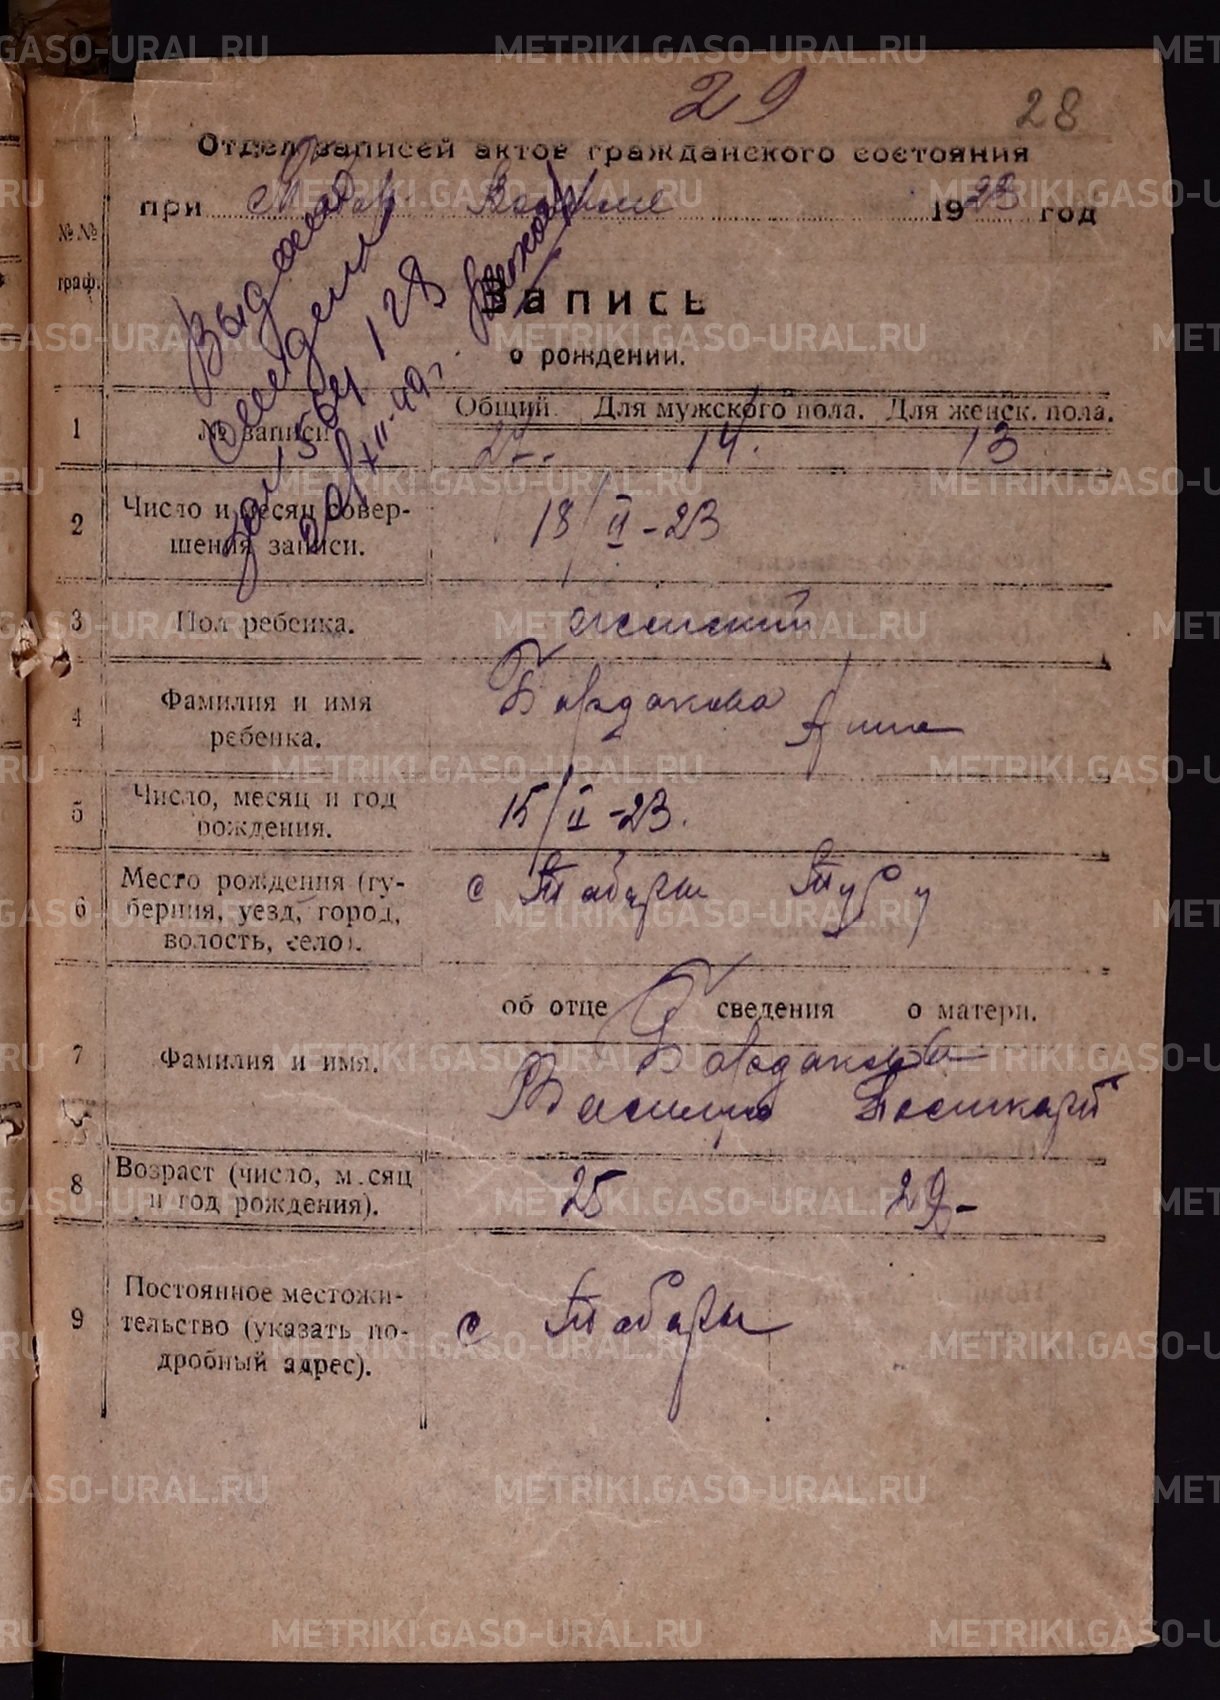 METRIKI.GASO-URAL.RU
29
28
Отдел записей актов гражданского состояния
при Табар 1923 год
№№ граф.
Выдано
Запись
о рождении.
1 № записи Общий. Для мужского пола. Для женск. пола.
27.. 14. 13
2 Число и месяц совершения записи. 18/II-23
3 Пол ребенка. женский
4 Фамилия и имя ребенка. Бардакова Анна
5 Число, месяц и год рождения. 15/II-23.
6 Место рождения (губерния, уезд, город, волость, село). с Табары Тур у
об отце сведения о матери.
7 Фамилия и имя. Бардакова
Василий
8 Возраст (число, месяц и год рождения). 25 29-
9 Постоянное местожительство (указать подробный адрес). с Табары